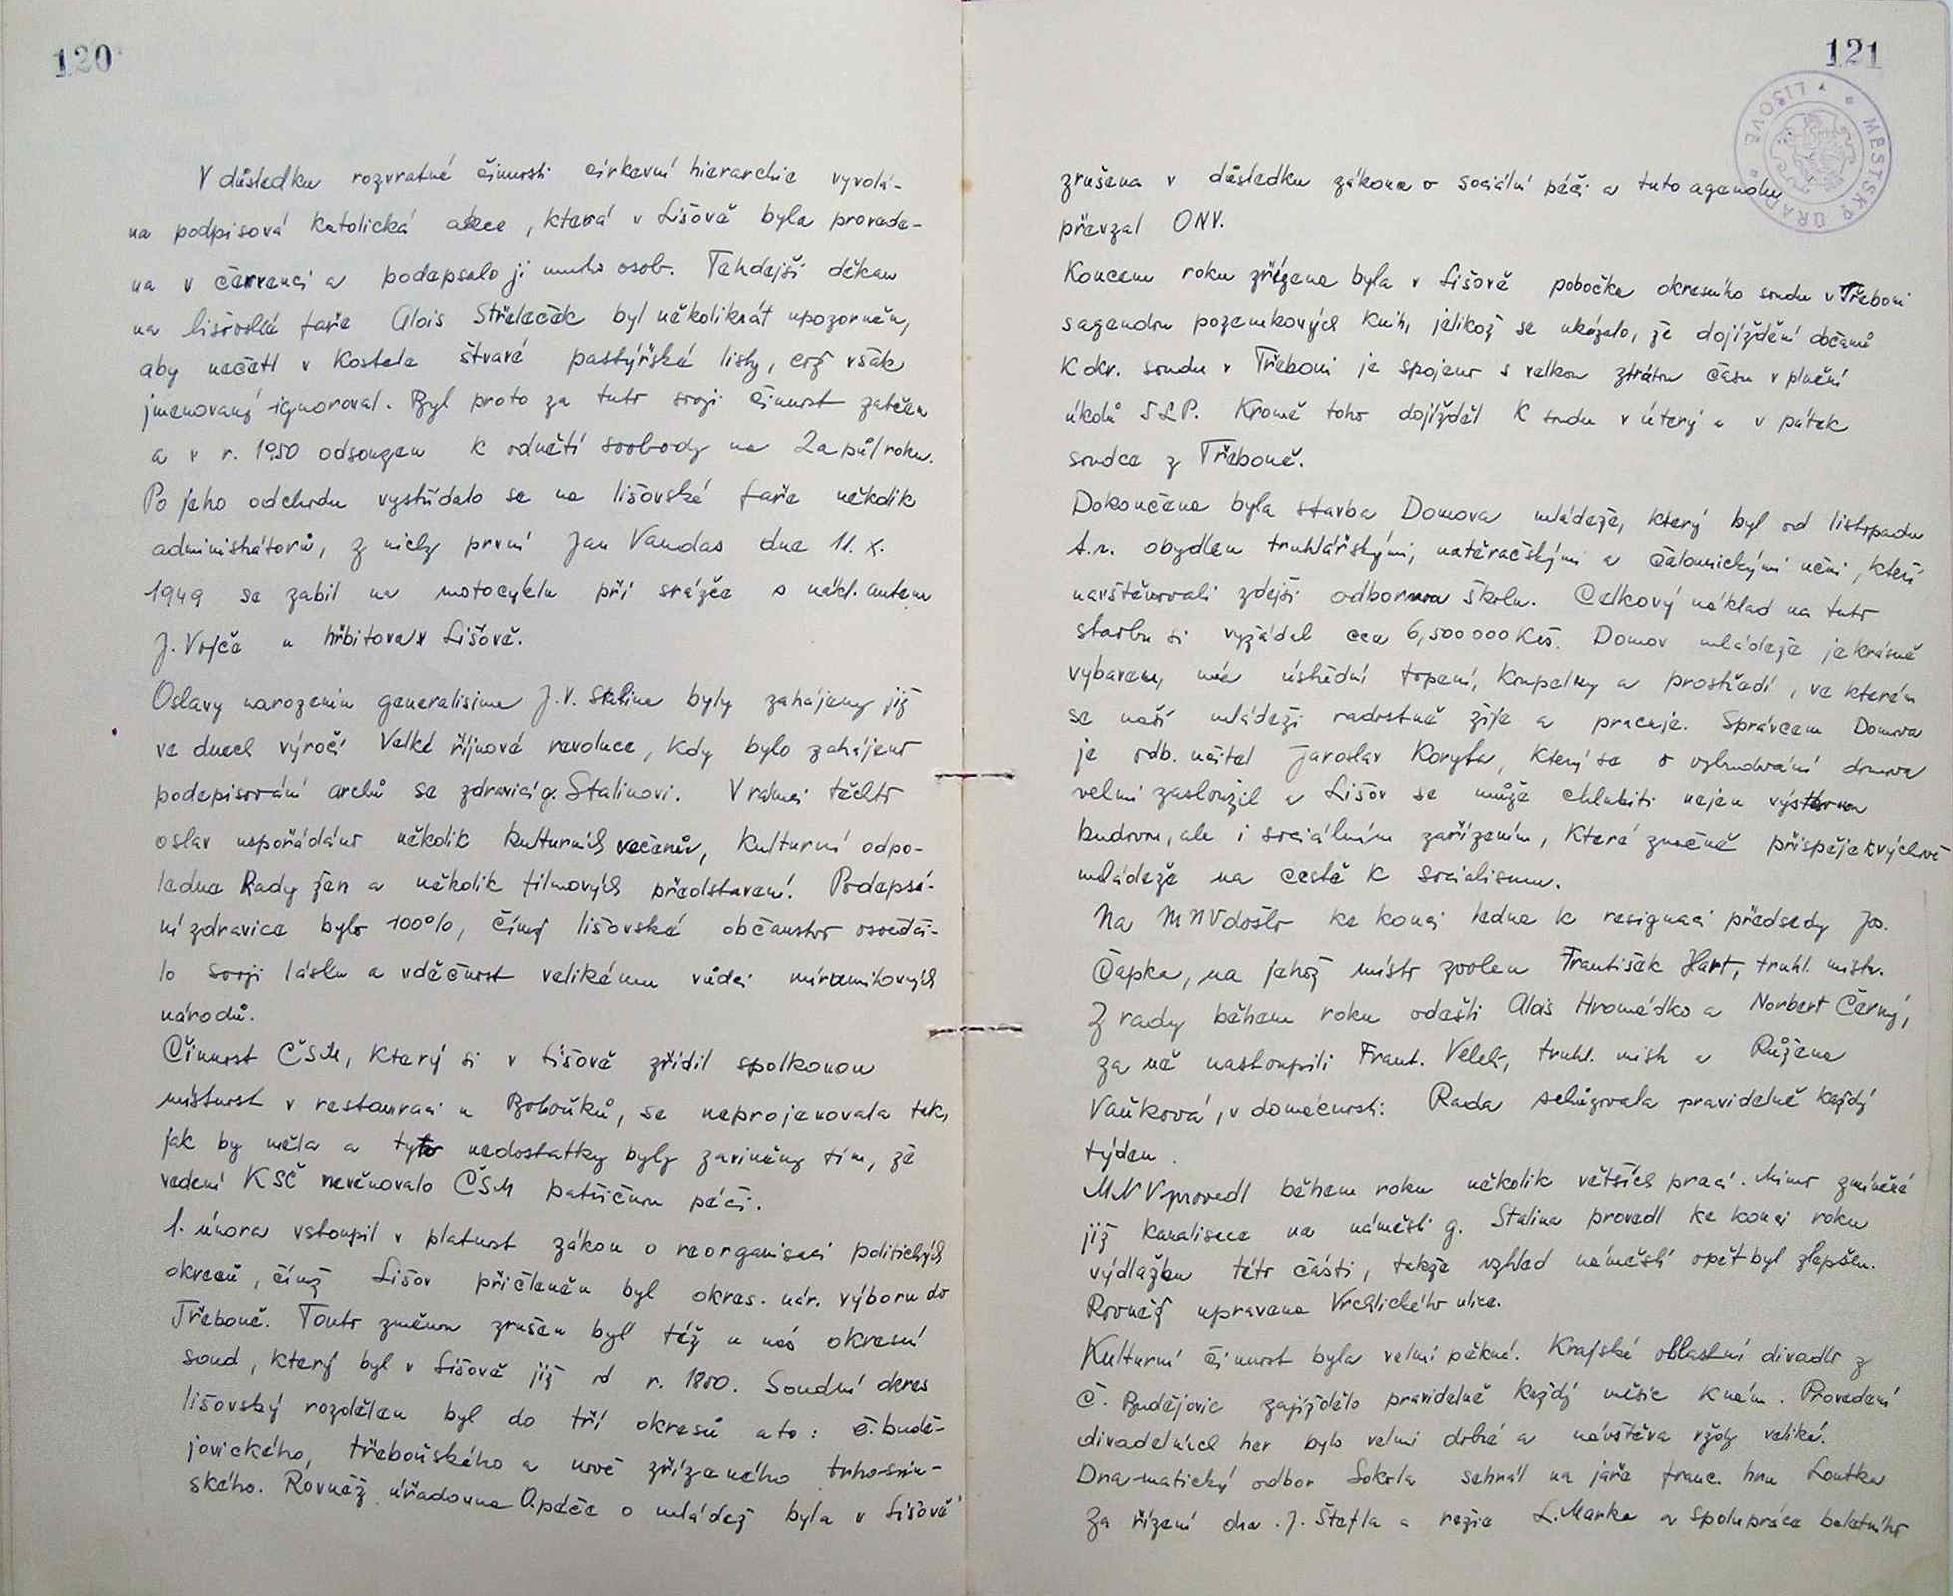 120
V důsledku rozvratné činnosti církevní hierarchie vyvolá-
na podpisová katolická akce, která v Lišově byla provede-
na v červenci a podepsalo ji mnoho osob. Tehdejší děkan
na lišovské faře Alois Střeleček byl několikrát upozorněn,
aby nečetl v kostele štvavé pastýřské listy, což však
jmenovaný ignoroval. Byl proto za tuto svoji činnost zatčen
a v r. 1950 odsouzen k odnětí svobody na 2a půl roku.
Po jeho odchodu vystřídalo se na lišovské faře několik
administrátorů, z nichž první Jan Vandas dne 11. X.
1949 se zabil na motocyklu při srážce s nákl. autem
J. Vojče u hřbitova v Lišově.
Oslavy narozenin generalisima J. V. Stalina byly zahájeny již
ve dnech výročí Velké říjnové revoluce, kdy bylo zahájeno
podepisování archů se zdravicí g. Stalinovi. V rámci těchto
oslav uspořádáno několik kulturních večerův, kulturní odpo-
ledne Rady žen a několik filmových představení. Podepsá-
ní zdravice bylo 100%, čímž lišovské občanstvo osvědči-
lo svoji lásku a vděčnost velikému vůdci mírumilovných
národů.
Činnost ČSM, který si v Lišově zřídil spolkovou
místnost v restauraci u Bobouků, se neprojevovala tak,
jak by měla a tyto nedostatky byly zaviněny tím, že
vedení KSČ nevěnovalo ČSM patřičnou péči.
1. února vstoupil v platnost zákon o reorganisaci politických
okresů, čímž Lišov přičleněn byl okres. nár. výboru do
Třeboně. Touto změnou zrušen byl též u nás okresní
soud, který byl v Lišově již od r. 1850. Soudní okres
lišovský rozdělen byl do tří okresů a to: č. budě-
jovického, třeboňského a nově zřízeného trhosvin-
ského. Rovněž úřadovna O.péče o mládež byla v Lišově
121
MĚSTSKÝ ÚŘAD V LIŠOVĚ
zrušena v důsledku zákona o sociální péči a tuto agendu
převzal ONV.
Koncem roku zřízena byla v Lišově pobočka okresního soudu v Třeboni
s agendou pozemkových knih, jelikož se ukázalo, že dojíždění občanů
k okr. soudu v Třeboni je spojeno s velkou ztrátou času v plnění
úkolů 5LP. Kromě toho dojížděl k soudu v úterý a v pátek
soudce z Třeboně.
Dokončena byla stavba Domova mládeže, který byl od listopadu
t.r. obydlen truhlářskými, natěračskými a čalounickými učni, kteří
navštěvovali zdejší odbornou školu. Celkový náklad na tuto
stavbu si vyžádal cca 6,500 000 Kčs. Domov mládeže je krásně
vybaven, má ústřední topení, koupelny a prostředí, ve kterém
se naší mládeži radostně žije a pracuje. Správcem Domova
je odb. učitel Jaroslav Koryta, který se o vybudování domova
velmi zasloužil a Lišov se může chlubiti nejen výstavnou
budovou, ale i sociálním zařízením, které značně přispěje k výchově
mládeže na cestě k socialismu.
Na MNV došlo ke konci ledna k resignaci předsedy Jos.
Čapka, na jehož místo zvolen František Hart, truhl. mistr.
Z rady během roku odešli Alois Hromádko a Norbert Černý,
za ně nastoupili Frant. Velek, truhl. mistr a Růžena
Vaňková, v domácnosti. Rada schůzovala pravidelně každý
týden.
MNV provedl během roku několik větších prací. Mimo zmíněné
již kanalisace na náměstí g. Stalina provedl ke konci roku
výdlažbu této části, takže vzhled náměstí opět byl zlepšen.
Rovněž upravena Vrchlického ulice.
Kulturní činnost byla velmi pěkná. Krajské oblastní divadlo z
Č. Budějovic zajíždělo pravidelně každý měsíc k nám. Provedení
divadelních her bylo velmi dobré a návštěva vždy veliká.
Dramatický odbor Sokola sehrál na jaře franc. hru Loutka
za řízení dra. J. Štefla a režie L. Marka a spolupráce baletního